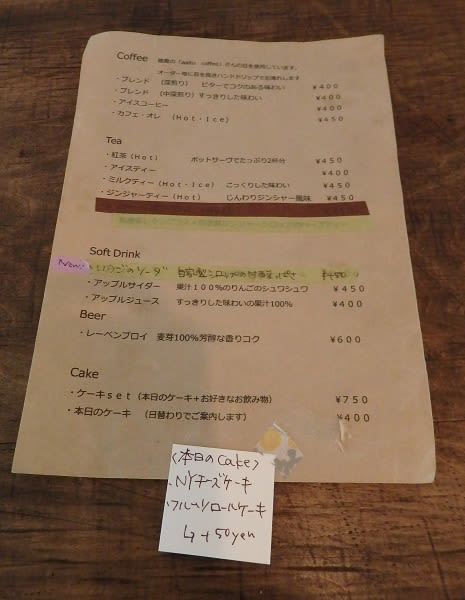 Coffee
徳島の（aalto coffee）さんの豆を使用しています。
オーダー毎に豆を挽きハンドドリップでお淹れします
・ブレンド （深煎り） ビターでコクのある味わい ¥４００
・ブレンド （中深煎り）すっきりした味わい ¥４００
・アイスコーヒー ¥４００
・カフェ・オレ （Ｈｏｔ・Ｉｃｅ） ¥４５０
Tea
・紅茶（Ｈｏｔ） ポットサーヴでたっぷり2杯分 ¥４５０
・アイスティー ¥４００
・ミルクティー（Ｈｏｔ・Ｉｃｅ） こっくりした味わい ¥４５０
・ジンジャーティー（Ｈｏｔ） じんわりジンジャー風味 ¥４５０
Soft Drink
New! ・いちごのソーダ 自家製シロップの ¥４５０
・アップルサイダー 果汁１００％のりんごのシュワシュワ ¥４５０
・アップルジュース すっきりした味わいの果汁100％ ¥４００
Beer
・レーベンブロイ 麦芽100％芳醇な香りコク ¥６００
Cake
・ケーキｓｅｔ（本日のケーキ+お好きなお飲み物） ¥７５０
・本日のケーキ （日替わりでご案内します） ¥４００
〈本日のcake〉
・NYチーズケーキ
・フルーツロールケーキ
↳ +50yen